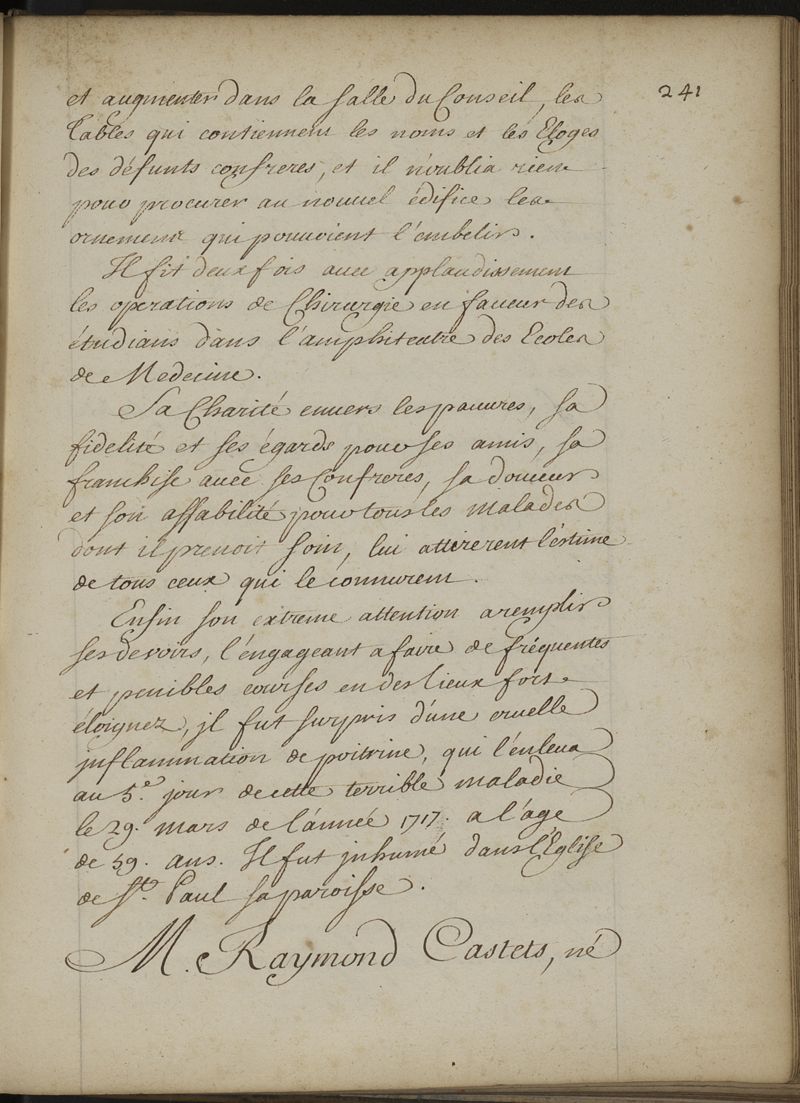 241
et augmenter dans la salle du Conseil, les
Tables qui contiennent les noms et les Eloges
des défunts confreres, et il n'oublia rien
pour procurer au nouuel édifice les
ornemens qui pouuoient l'embelir.
Il fit deux fois auec applaudissement
les operations de Chirurgie en faueur des
étudians dans l'amphiteatre des Ecoles
de Medecine.
Sa Charité enuers les pauures, sa
fidelité et ses égards pour ses amis, sa
franchise auec ses Confreres, sa douceur
et son affabilité pour tous les malades
dont il prenoit soin, lui attirerent l'estime
de tous ceux qui le connurent.
Enfin son extreme attention a remplir
ses devoirs, l'engageant a faire de fréquentes
et penibles courses en des lieux fort
éloignez, jl fut surpris d'une cruelle
jnflammation de poitrine, qui l'enleua
au 5.e jour de cette terrible maladie
le 29. mars de l'année 1717. a l'age
de 59. ans. Il fut jnhumé dans l'Eglise
de St. Paul sa paroisse.
M. Raymond Castets, né